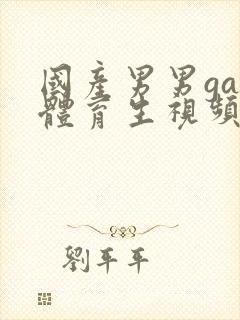 國產男男ga
體育生視頻
劉平平